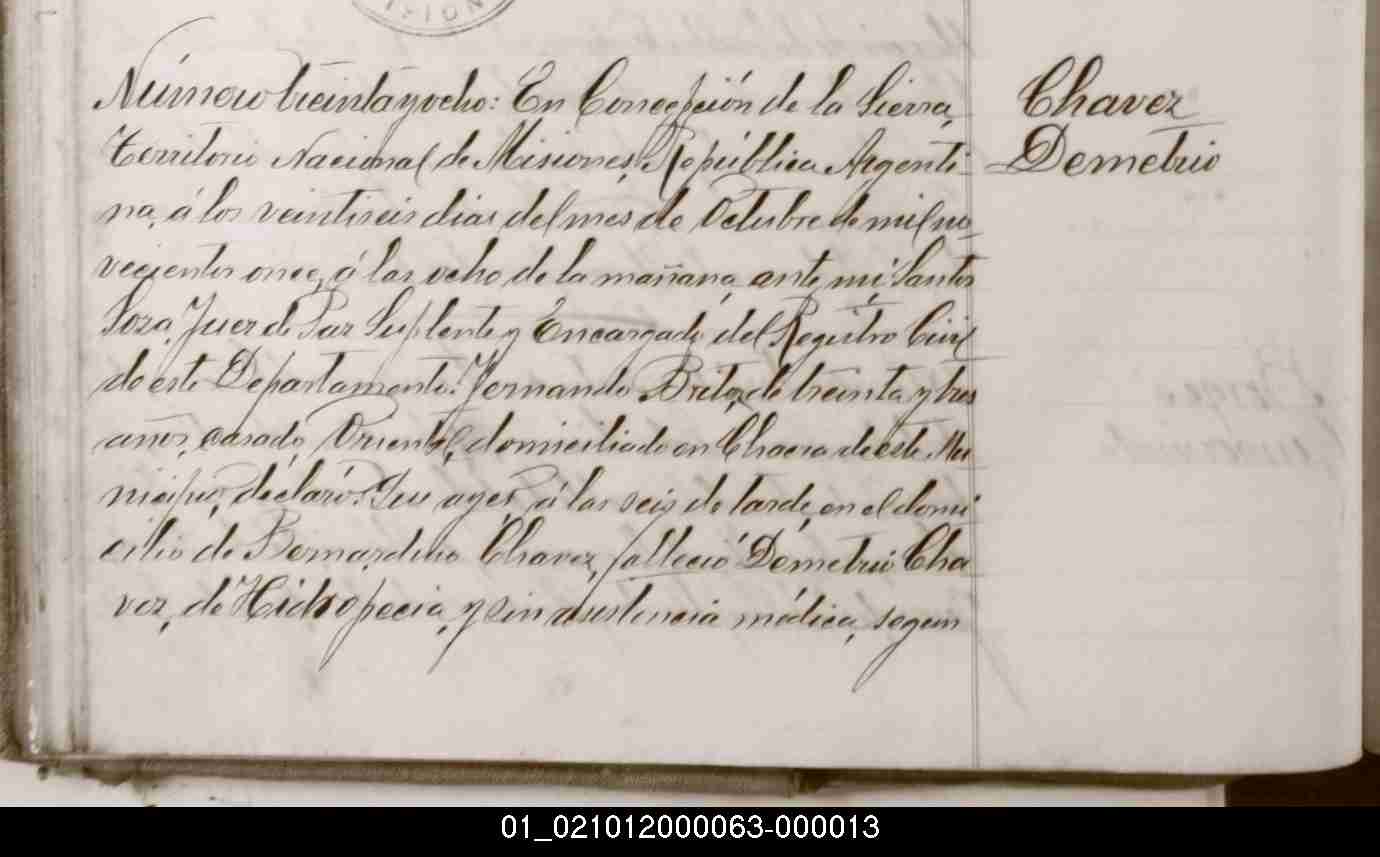 ISION
Número treinta y ocho: En Concepción de la Sierra,
Territorio Nacional de Misiones, República Argenti-
na, á los veintiseis dias del mes de Octubre de mil no-
vecientos once, á las ocho de la mañana, ante mi, Santos
Soza, Juez de Paz Suplente y Encargado del Registro Civil
de este Departamento: Fernando Brito, de treinta y tres
años, casado, Oriental, domiciliado en Chacra de este Mu
nicipio, declaró: Que ayer, á las seis de tarde, en el domi
cilio de Bernardino Chavez, falleció Demetrio Cha
vez, de Hidropecia, y sin asistencia médica, segun
Chavez
Demetrio
01_021012000063-000013